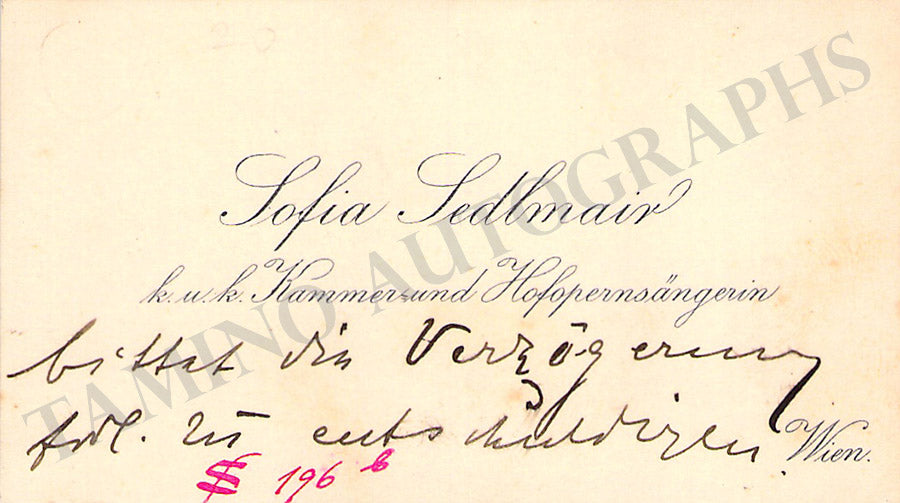 Sofia Sedlmair
k. u. k. Kammer- und Hofopernsängerin
bittet die Verzögerung
frdl. zu entschuldigen.
Wien.
$ 196 b
TAMINO AUTOGRAPHS